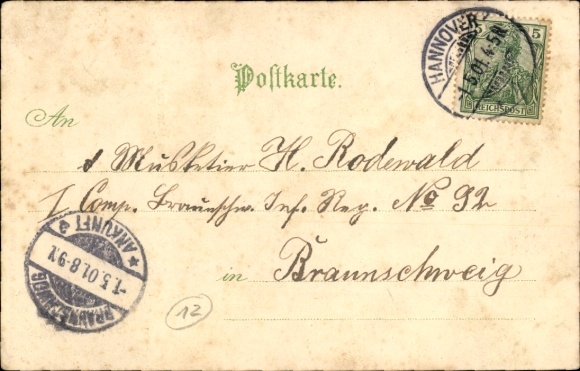 HANNOVER
1.5.01. 4-5N
5 5
REICHSPOST
Postkarte.
An
Musketier H. Rodewald
I Comp. Braunschw. Inf. Reg. No 92
in Braunschweig
BRAUNSCHWEIG
1.5.01. 8-9
ANKUNFT
12